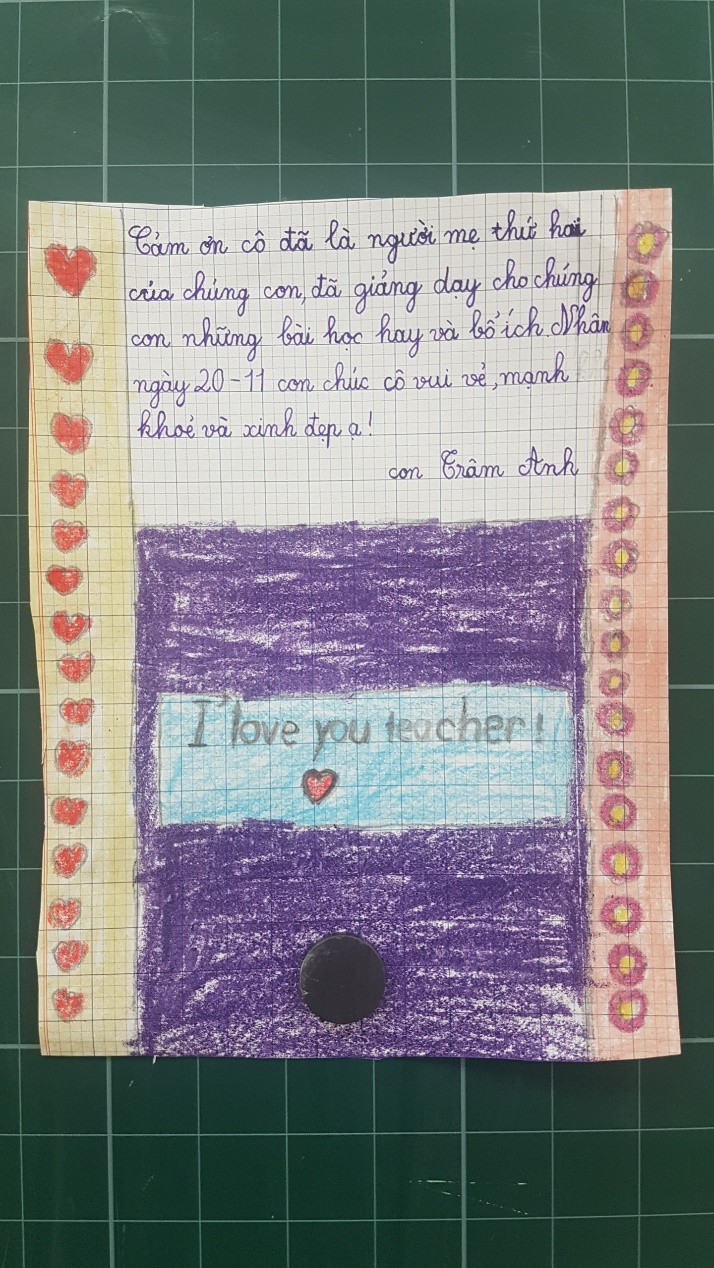 Cảm ơn cô đã là người mẹ thứ hai
của chúng con, đã giảng dạy cho chúng
con những bài học hay và bổ ích. Nhân
ngày 20-11 con chúc cô vui vẻ, mạnh
khoẻ và xinh đẹp ạ!
con Trâm Anh
I love you teacher!